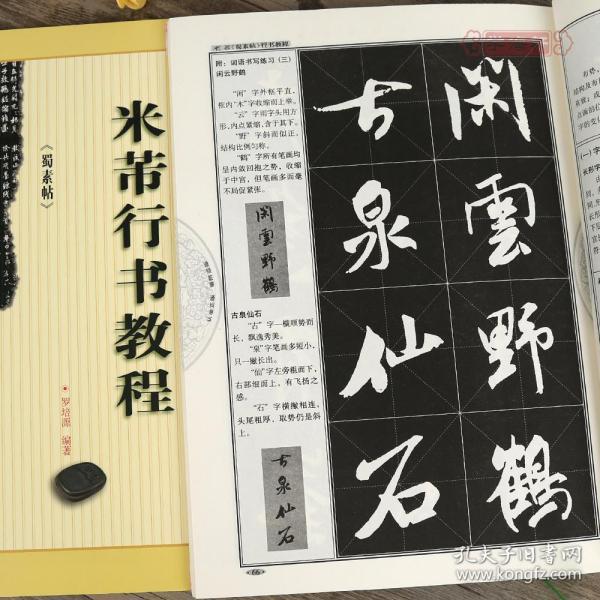 米芾行书教程
《蜀素帖》
罗培源 编著
米芾《蜀素帖》行书教程
附：词语书写练习（三）
闲云野鹤
“闲”字外框平直，
框内“木”字收缩而上举。
“云”字雨字头用方
形，内点紧缩，含于其下。
“野”字斜而似正，
结构比例匀称。
“鹤”字所有笔画均
呈内敛回抱之势，收缩
于中宫，但笔画多而毫
不局促紧张。
闲雲野鶴
古泉仙石
“古”字一横顺势而
长，飘逸秀美。
“泉”字笔画多短小，
只一撇长出。
“仙”字左旁粗而下，
右部细而上，有飞扬之
感。
“石”字横撇相连，
头尾粗厚，取势仍是斜
上。
古泉仙石
闲雲野鶴
古泉仙石
66
孔夫子旧书网
kongfz.com